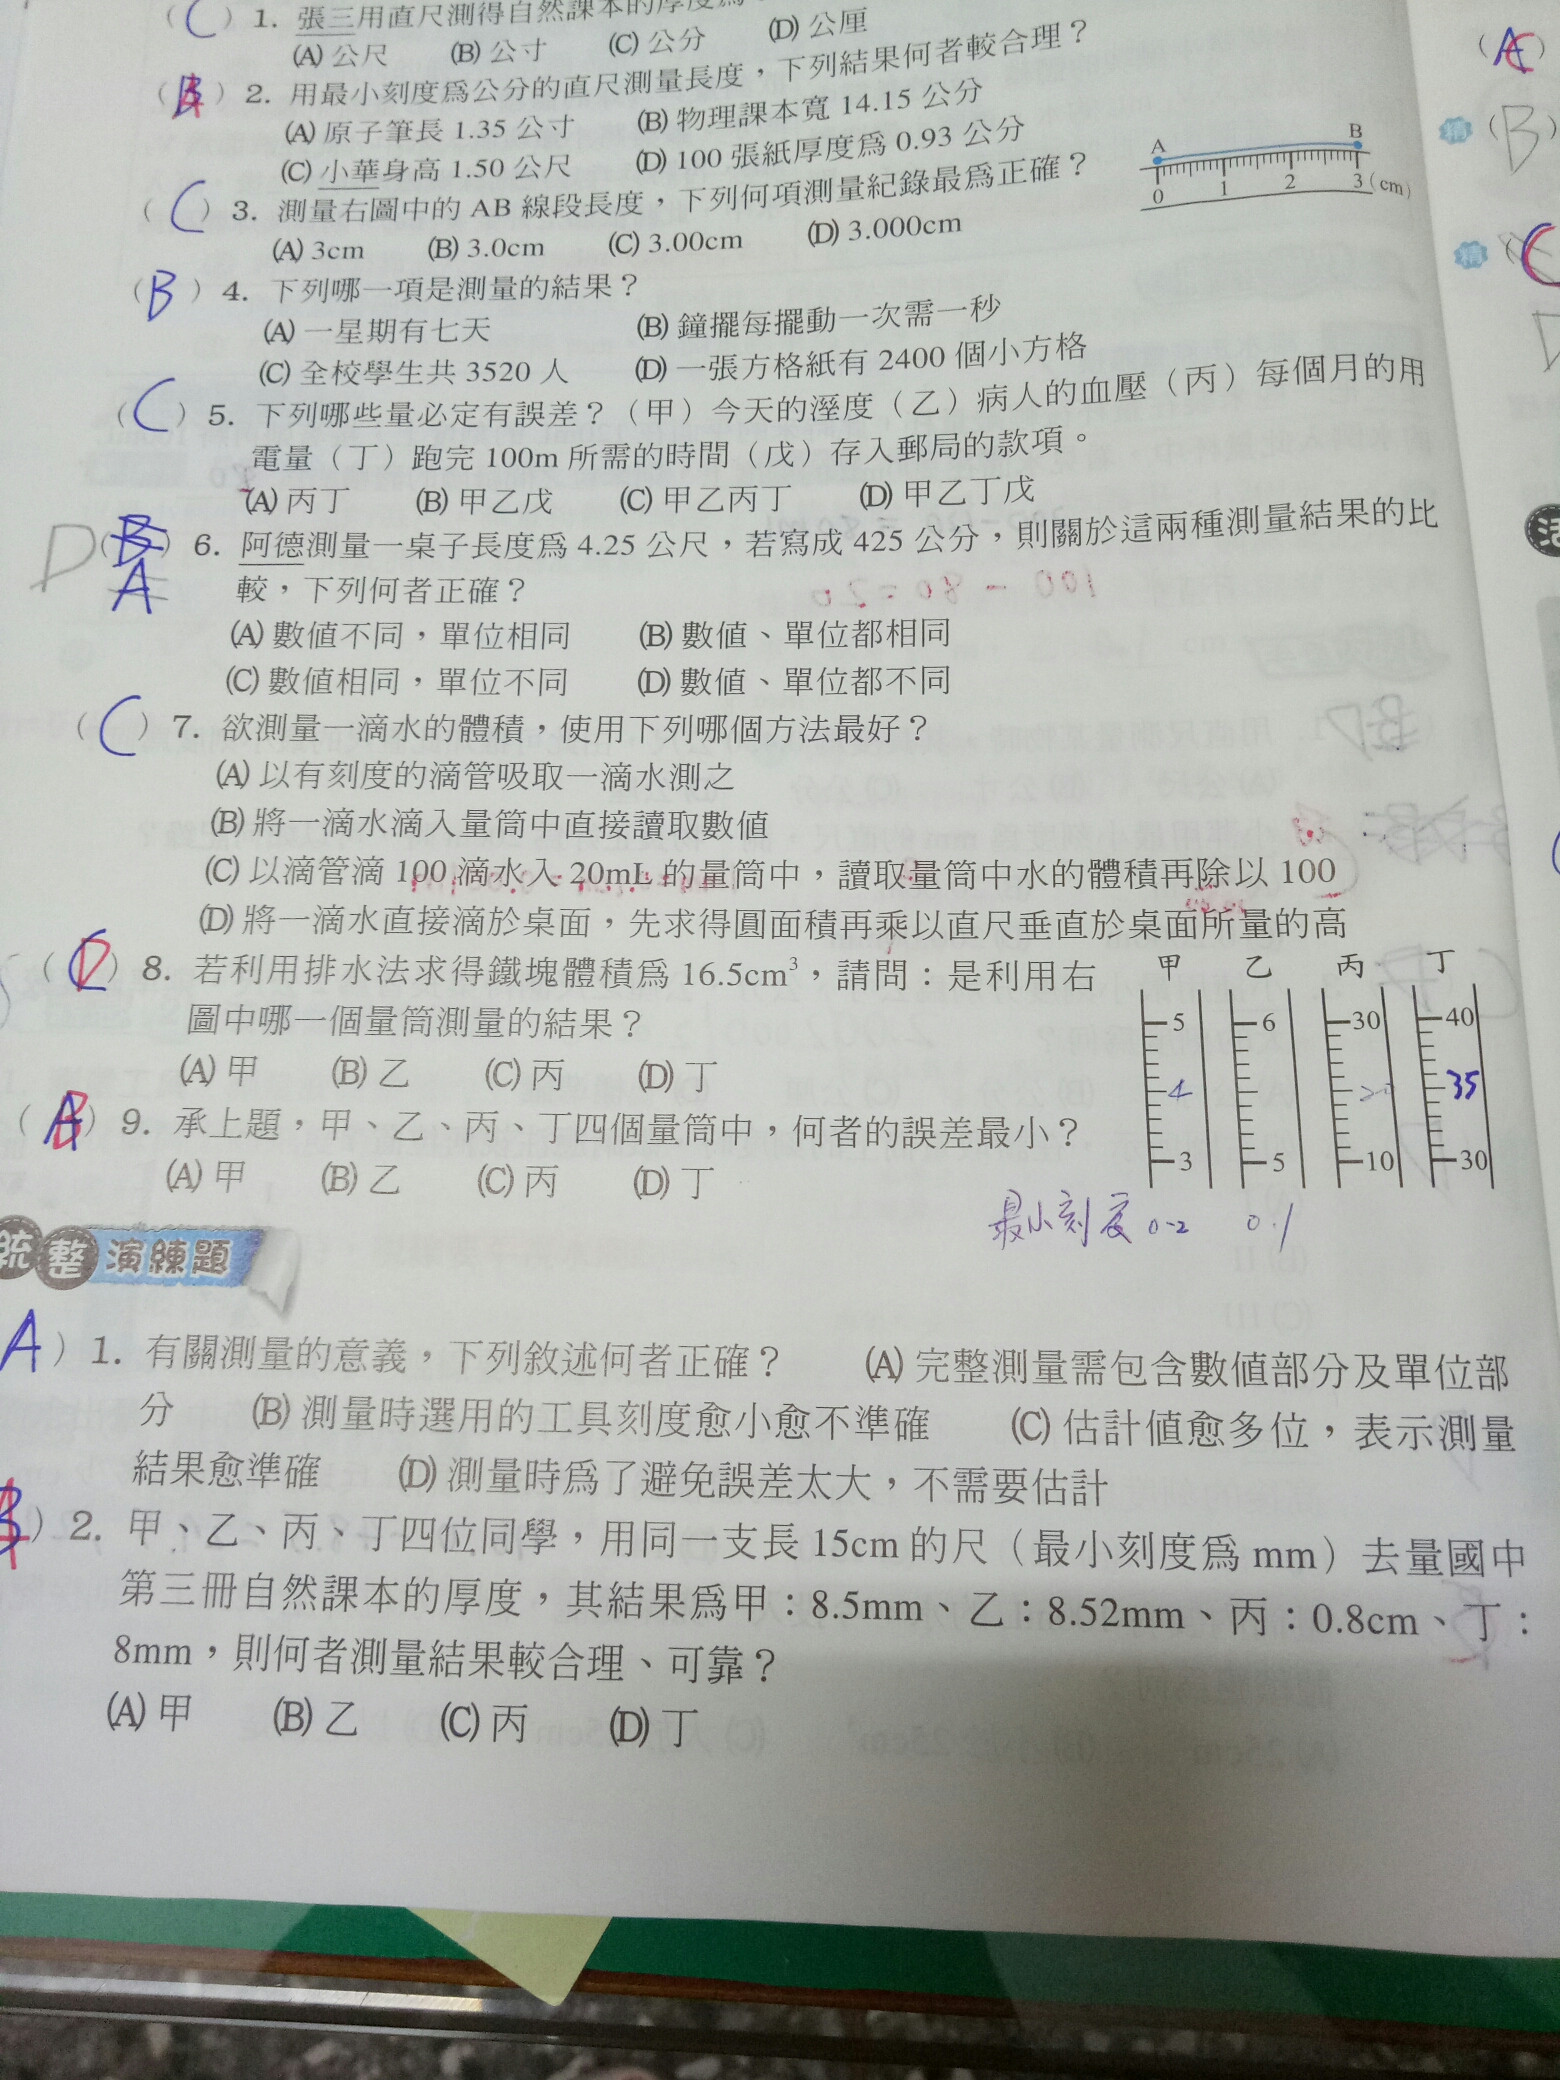 (C) 1. 張三用直尺測得自然課本的厚度為
(A) 公尺 (B) 公寸 (C) 公分 (D) 公厘
2. 用最小刻度為公分的直尺測量長度，下列結果何者較合理？
(A) 原子筆長 1.35 公寸 (B) 物理課本寬 14.15 公分
(C) 小華身高 1.50 公尺 (D) 100 張紙厚度為 0.93 公分
(C) 3. 測量右圖中的 AB 線段長度，下列何項測量紀錄最為正確？
(A) 3cm (B) 3.0cm (C) 3.00cm (D) 3.000cm
A B
0 1 2 3 (cm)
(B) 4. 下列哪一項是測量的結果？
(A) 一星期有七天 (B) 鐘擺每擺動一次需一秒
(C) 全校學生共 3520 人 (D) 一張方格紙有 2400 個小方格
(C) 5. 下列哪些量必定有誤差？（甲）今天的溼度（乙）病人的血壓（丙）每個月的用
電量（丁）跑完 100m 所需的時間（戊）存入郵局的款項。
(A) 丙丁 (B) 甲乙戊 (C) 甲乙丙丁 (D) 甲乙丁戊
D (B) 6. 阿德測量一桌子長度為 4.25 公尺，若寫成 425 公分，則關於這兩種測量結果的比
A 較，下列何者正確？
(A) 數值不同，單位相同 (B) 數值、單位都相同
(C) 數值相同，單位不同 (D) 數值、單位都不同
(C) 7. 欲測量一滴水的體積，使用下列哪個方法最好？
(A) 以有刻度的滴管吸取一滴水測之
(B) 將一滴水滴入量筒中直接讀取數值
(C) 以滴管滴 100 滴水入 20mL 的量筒中，讀取量筒中水的體積再除以 100
(D) 將一滴水直接滴於桌面，先求得圓面積再乘以直尺垂直於桌面所量的高
8. 若利用排水法求得鐵塊體積為 16.5cm³，請問：是利用右
圖中哪一個量筒測量的結果？
(A) 甲 (B) 乙 (C) 丙 (D) 丁
甲 乙 丙 丁
5 6 30 40
4 20 35
3 5 10 30
9. 承上題，甲、乙、丙、丁四個量筒中，何者的誤差最小？
(A) 甲 (B) 乙 (C) 丙 (D) 丁
最小刻度 0.2 0.1
統整演練題
A) 1. 有關測量的意義，下列敘述何者正確？ (A) 完整測量需包含數值部分及單位部
分 (B) 測量時選用的工具刻度愈小愈不準確 (C) 估計值愈多位，表示測量
結果愈準確 (D) 測量時為了避免誤差太大，不需要估計
) 2. 甲、乙、丙、丁四位同學，用同一支長 15cm 的尺（最小刻度為 mm）去量國中
第三冊自然課本的厚度，其結果為甲：8.5mm、乙：8.52mm、丙：0.8cm、丁：
8mm，則何者測量結果較合理、可靠？
(A) 甲 (B) 乙 (C) 丙 (D) 丁
精 (B)
精